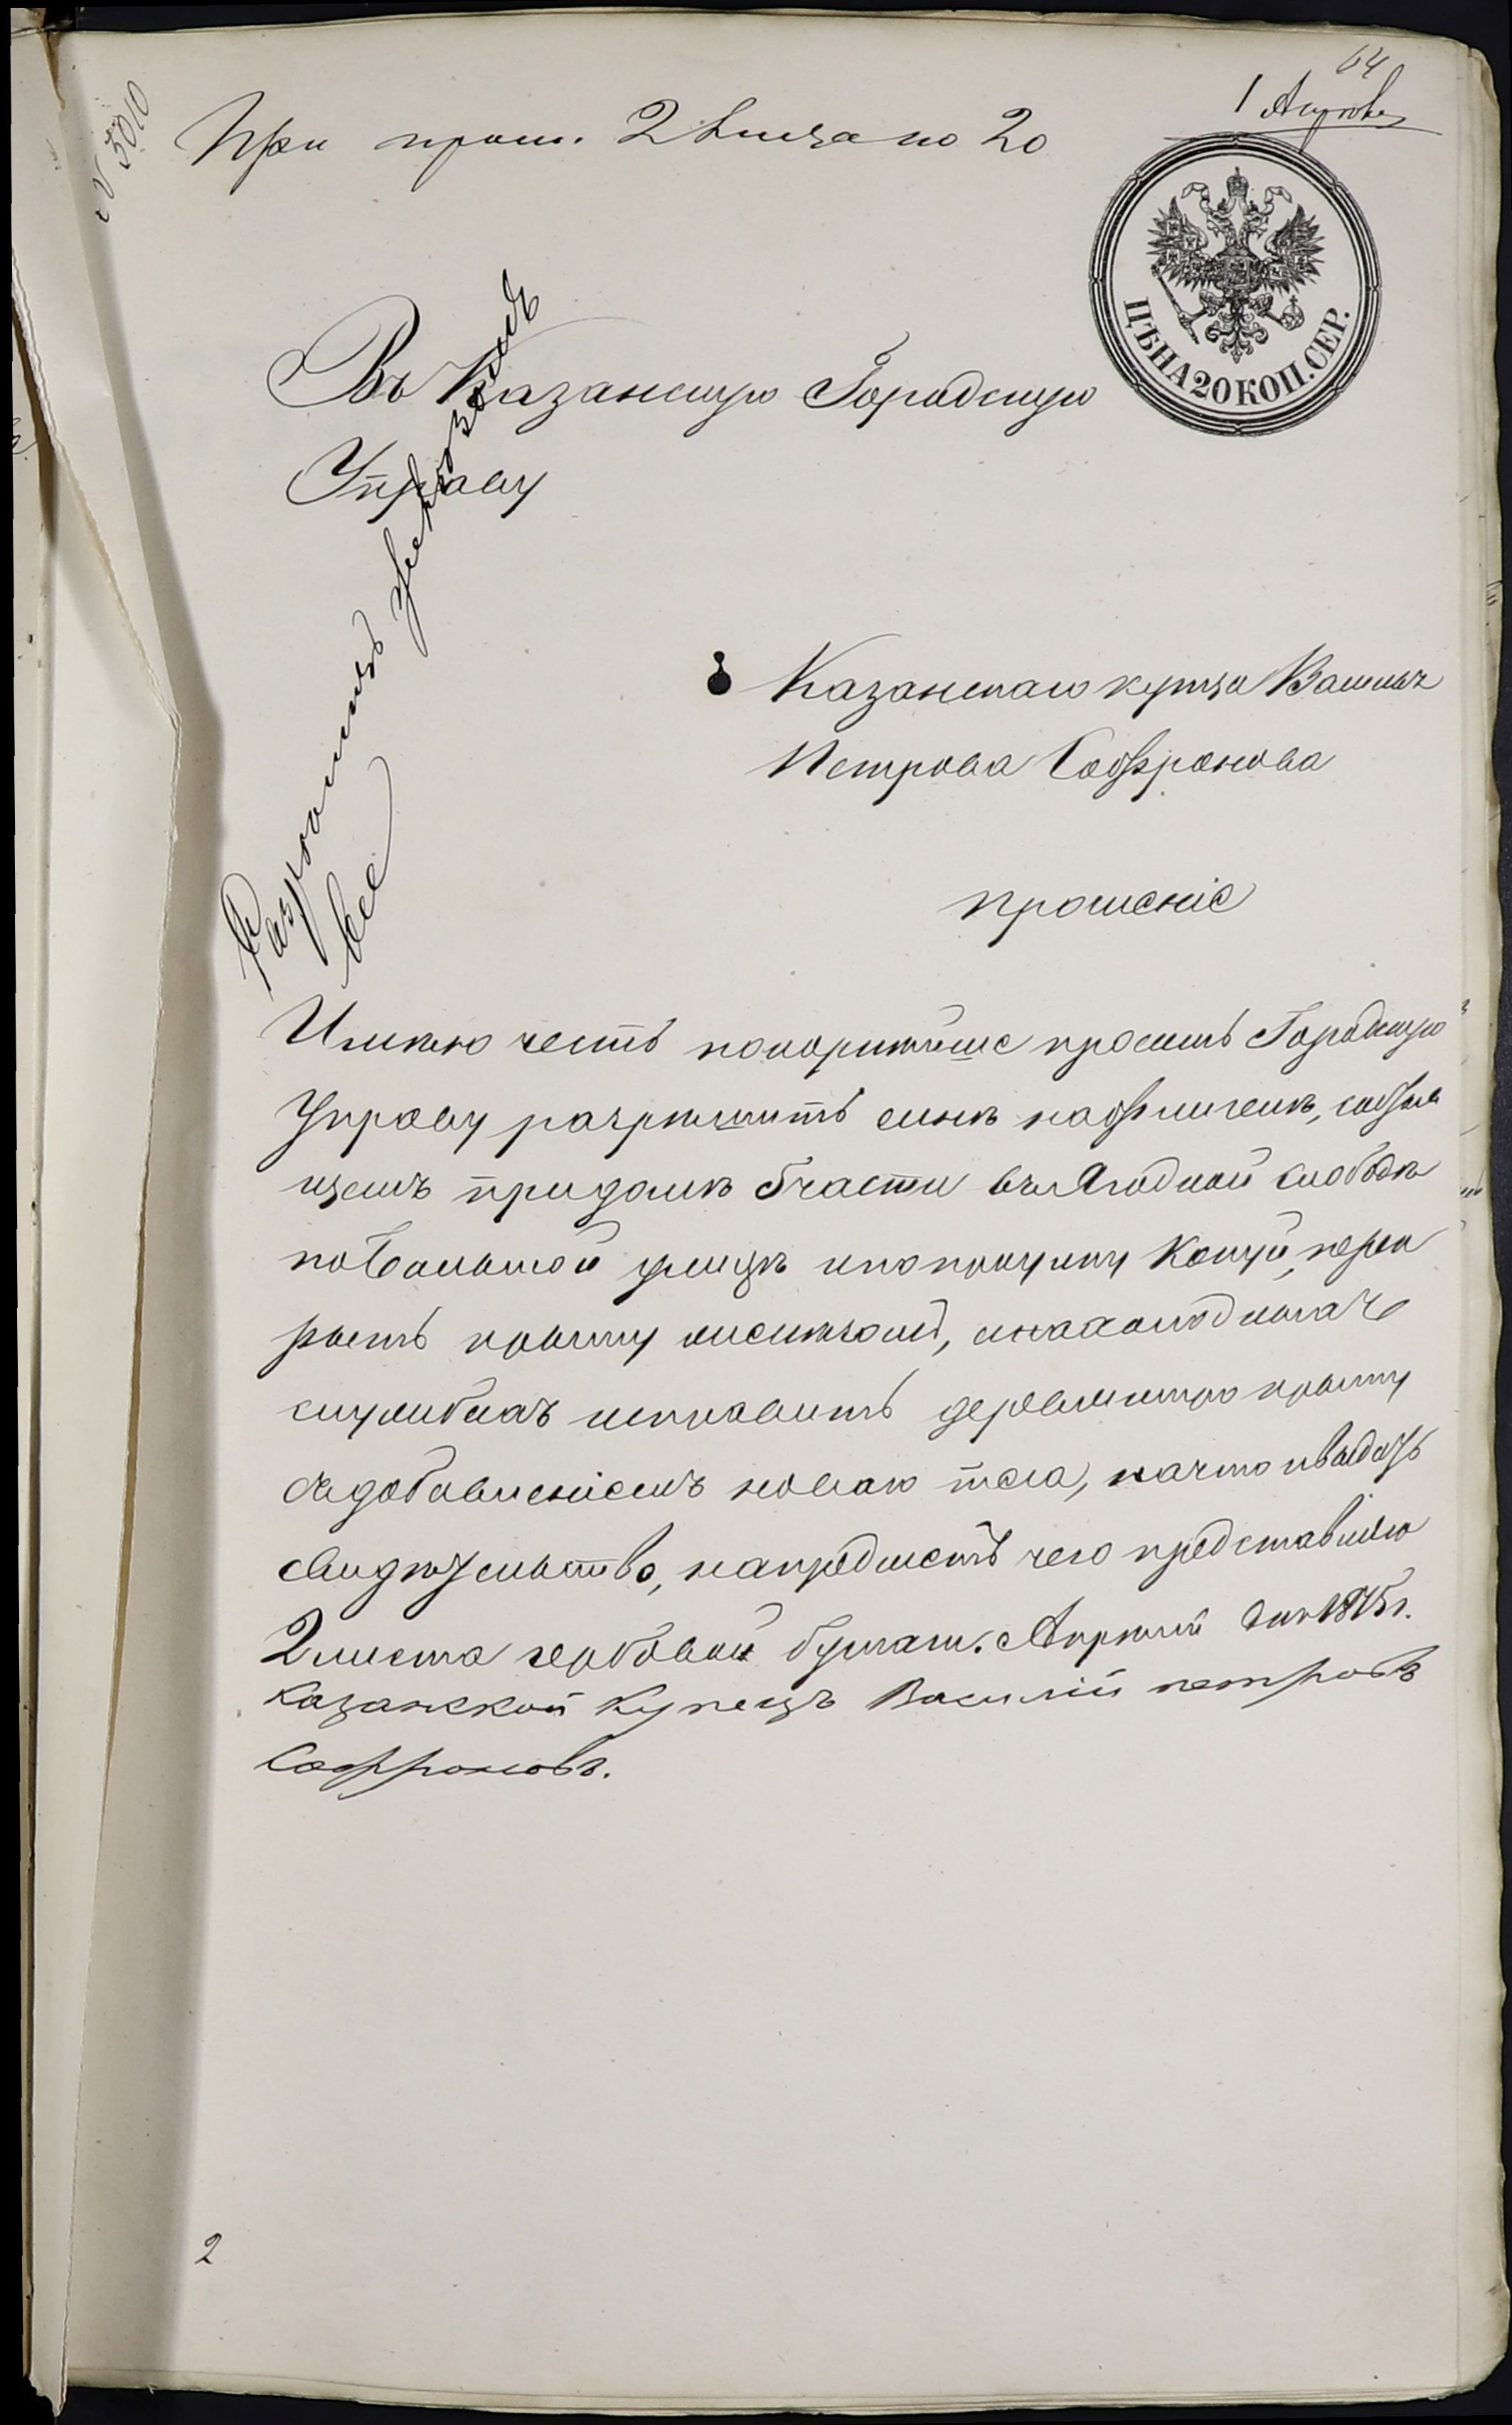 64
1 Апрѣля
№ 3010
При прош. 2 листа по 20
ЦѢНА 20 КОП. СЕР.
Въ Казанскую Городскую
Управу
Казанскаго купца Василья
Петрова Сафронова
прошеніе
Разрѣшить
все
Имѣю честь покорнѣйше просить Городскую
Управу разрѣшить мнѣ на флигелѣ, состоя
щемъ при домѣ 5 части въ Ягодной слободѣ
по Большой улицѣ и по проулку перек
рыть крышу желѣзомъ, и на холодныхъ
службахъ исправить деревянную крышу
съ добавленіемъ новаго теса, на что и выдать
свидѣтельство, на предметъ чего представляю
2 листа гербовой бумаги. Апрѣля дня 1875 г.
Казанской Купецъ Василій петровъ
Сафроновъ.
2